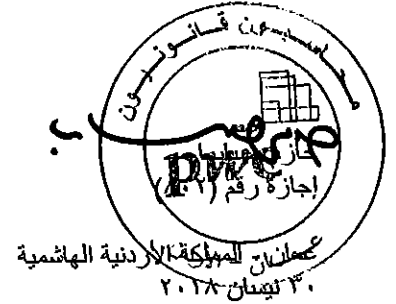 محاسبون قانونيون
pwc
إجازة رقم (٨٠٢)
عمان - المملكة الأردنية الهاشمية
٣٠ نيسان ٢٠١٨